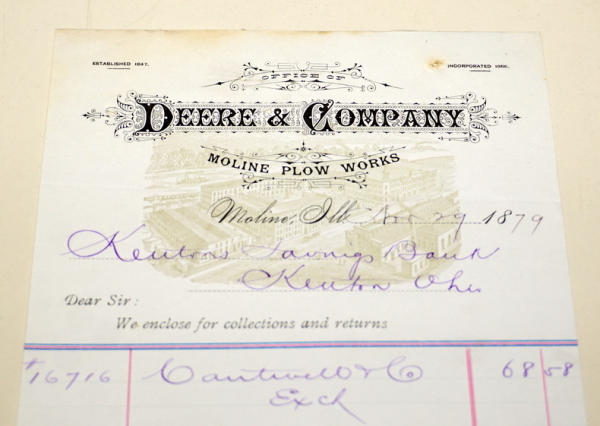 ESTABLISHED 1847.
INCORPORATED 1868.
OFFICE OF
DEERE & COMPANY
MOLINE PLOW WORKS
Moline, Ill. Nov 29 1879
Kenton Savings Bank
Kenton Ohio
Dear Sir:
We enclose for collections and returns
#16716 Cantwell & Co 68 58
Exch